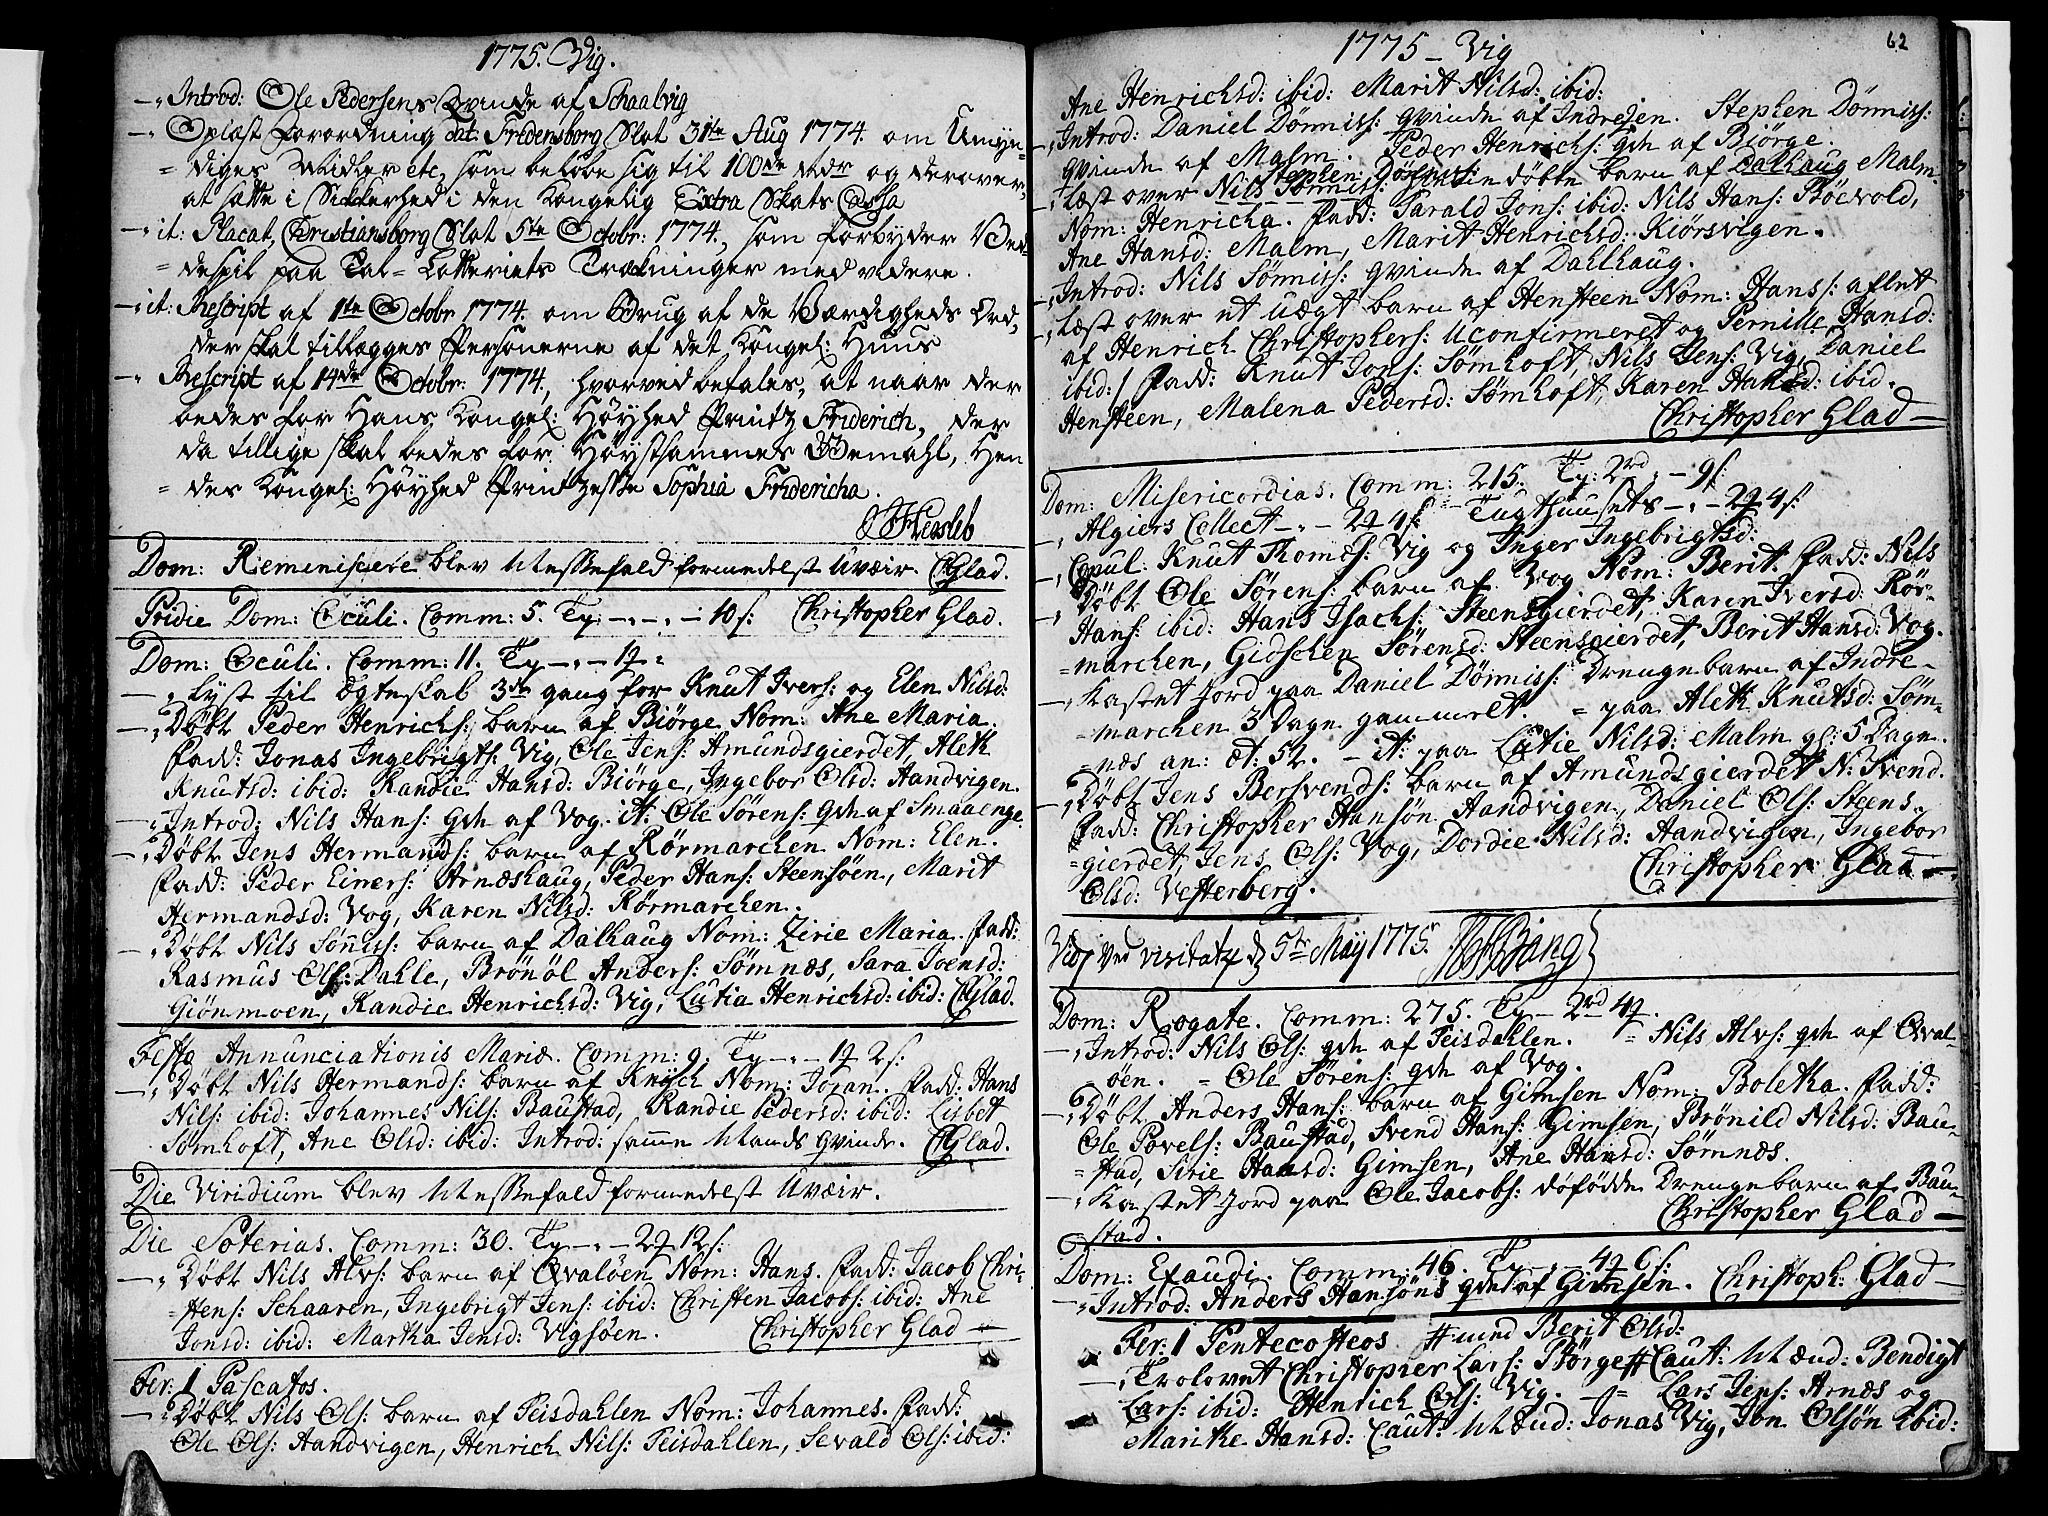 1775. Vig.
-„ Introd: Ole Pedersens Qvinde af Schaalvig
-„ Oplæst Forordning dat: Fredensborg Slot 31te Aug 1774. om Umyn-
= diges Midler etc, som beløbe sig til 100de Rdr og derover,
at sætte i Sikkerhed i den Kongelig Extra Skats Cassa
-„ it: Placat, Christiansborg Slot 5te Octobr: 1774., som forbyder Ved-
= despil paa Tal-Lotteriets Trækninger med videre.
-„ it: Rescript af 1te Octobr 1774. om Brug af de Værdigheds Ord,
der skal tillægges Personerne af det Kongel: Huus
-„ Rescript af 14de Octobr: 1774, hvorved befales, at naar der
bedes for Hans Kongel: Høyhed Printz Friderich, der
da tillige skal bedes for Høystsammes Gemahl, Hen
= des Kongel: Høyhed Printzesse Sophia Fridericha.
Hersleb
Dom: Reminiscere blev Messefald formedelst Uveir. CGlad.
Pridie Dom: Oculi. Comm: 5. Tv: -„-„- 10 s: Christopher Glad.
Dom: Oculi. Comm: 11. Tv -„- 1
-„ Lyst til Ægteskab 3die gang for Knut Ivers: og Elen Nilsd:
-„ Døbt Peder Henrichs: barn af Biørge Nom: Ane Maria.
Fadd: Jonas Ingebrigts: Vig, Ole Jens: Amundsgierdet, Aleth
Knutsd: ibid: Randie Hansd: Biørge, Ingebor Olsd: Aandvigen.
-„ Introd: Nils Hans: Qde af Vog. it: Ole Sørens: Qde af Smaaenge.
-„ Døbt Jens Hermands: barn af Rørmarchen Nom: Elen.
Fadd: Peder Einers: Arnæshaug, Peder Hans: Steensøen, Marit
Hermandsd: Vog, Karen Nilsd: Rørmarchen.
-„ Døbt Nils Sønnits: barn af Dalhaug Nom: Zirie Maria. Fadd:
Rasmus Ols: Dahle, Brønøl Anders: Sømnæs, Sara Joensd:
Giønmoen, Randie Henrichsd: Vig, Lutia Henrichsd: ibid: CGlad.
Festo Annunciationis Mariæ. Comm: 9. Tv -„- 1 2 s:
-„ Døbt Nils Hermands: barn af Knysch Nom: Joran. Fadd: Hans
Nils: ibid: Johannes Nils: Baustad, Randie Pedersd: ibid: Lisbet
Sømhoft, Ane Olsd: ibid: Introd: samme Mands qvinde. CGlad.
Die Viridium blev Messefald formedelst Uveir.
Die Soterias. Comm: 30. Tv -„- 2 12 s:
-„ Døbt Nils Alvs: barn af Qvaløen Nom: Hans. Fadd: Jacob Chri-
= stens: Schaaren, Ingebrigt Jens: ibid: Christen Jacobs: ibid: Ane
Jonsd: ibid: Martha Jensd: Vigsøen. Christopher Glad -
Fer: 1 Pascatos.
-„ Døbt Nils Ols: barn af Feisdahlen Nom: Johannes. Fadd:
Ole Ols: Aandvigen, Henrich Nils: Feisdahlen, Sevald Ols: ibid:
1775 - Vig
62
Ane Henrichsd: ibid: Marit Nilsd: ibid:
-„ Introd: Daniel Dønnits: qvinde af Indreløen. Stephen Dønnits:
qvinde af Malm. Peder Henrichs: qde af Biørge.
Stephen Dønnits:
-„ Læst over Nils Sønnits: hiemmedøbte barn af Dalhaug Malm.
Nom: Henricha. Fadd: Harald Jons: ibid: Nils Hans: Bøevold,
Ane Hansd: Malm, Marit Henrichsd: Kiørsvigen.
-„ Introd: Nils Sønnits: qvinde af Dalhaug.
-„ Læst over et uægt barn af Hensteen Nom: Hans /: aflet
af Henrich Christophers: Uconfirmeret og Pernille Hansd:
ibid: / Fadd: Knut Jons: Sømhoft, Nils Jens: Vig, Daniel
Hensteen, Malena Pedersd: Sømhoft, Karen Hansd: ibid.
Christopher Glad -
Dom: Misericordias. Comm: 215. Tv: 2rd -„- 9 s:
-„ Algiers Collect -„- 2 4 s: Tugthuusets -„- 2 4 s:
-„ Copul: Knut Thomæs: Vig og Inger Ingebrigtsd:
-„ Døbt Ole Sørens: barn af Vog Nom: Berit. Fadd: Nils
Hans: ibid: Hans Isachs: Steensgierdet, Karen Iversd: Rør-
= marchen, Gidschen Sørensd: Steensgierdet, Berit Hansd: Vog.
-„ Kastet Jord paa Daniel Dønnits: Drengebarn af Indre-
= marchen 3 Dage gammelt. = paa Aleth Knutsd: Søm-
= næs an: æt: 52. - it: paa Lutie Nilsd: Malm gl: 5 Dage.
-„ Døbt Jens Bersvends: barn af Amundsgierdet N: Svend.
Fadd: Christopher Hansøn Aandvigen, Daniel Ols: Steens-
= gierdet, Jens Ols: Vog, Dordie Nilsd: Aandvigen, Ingebor
Olsd: Vesterberg. Christopher Glad -
Vig ved visitatz d 5te May 1775. Bang
Dom: Rogate. Comm: 275. Tv - 2rd 4
-„ Introd: Nils Ols: qde af Feisdahlen. = Nils Alvs: qde af Qval-
øen. = Ole Sørens: qde af Vog.
-„ Døbt Anders Hans: barn af Gimsen Nom: Boletha. Fadd:
Ole Povels: Baustad, Svend Hans: Gimsen, Brønild Nilsd: Bau-
= stad, Sirie Hansd: Gimsen, Ane Hansd: Sømnæs.
-„ Kastet Jord paa Ole Jacobs: døfødde Drengebarn af Bau-
stad. Christopher Glad -
Dom: Exaudi. Comm: 46. Tv -„- 4 6 s:
-„ Introd: Anders Hansøns qde af Gimsen. Christoph: Glad -
Fer: 1 Pentecosteos # med Berit Olsd:
-„ Trolovet Christopher Lars: Børge # Caut: Mænd: Bendigt
Lars: ibid: Henrich Ols: Vig. -„= Lars Jens: Arnæs og
Marithe Hansd: Caut: Mænd: Jonas Vig, Jon Olsøn ibid: